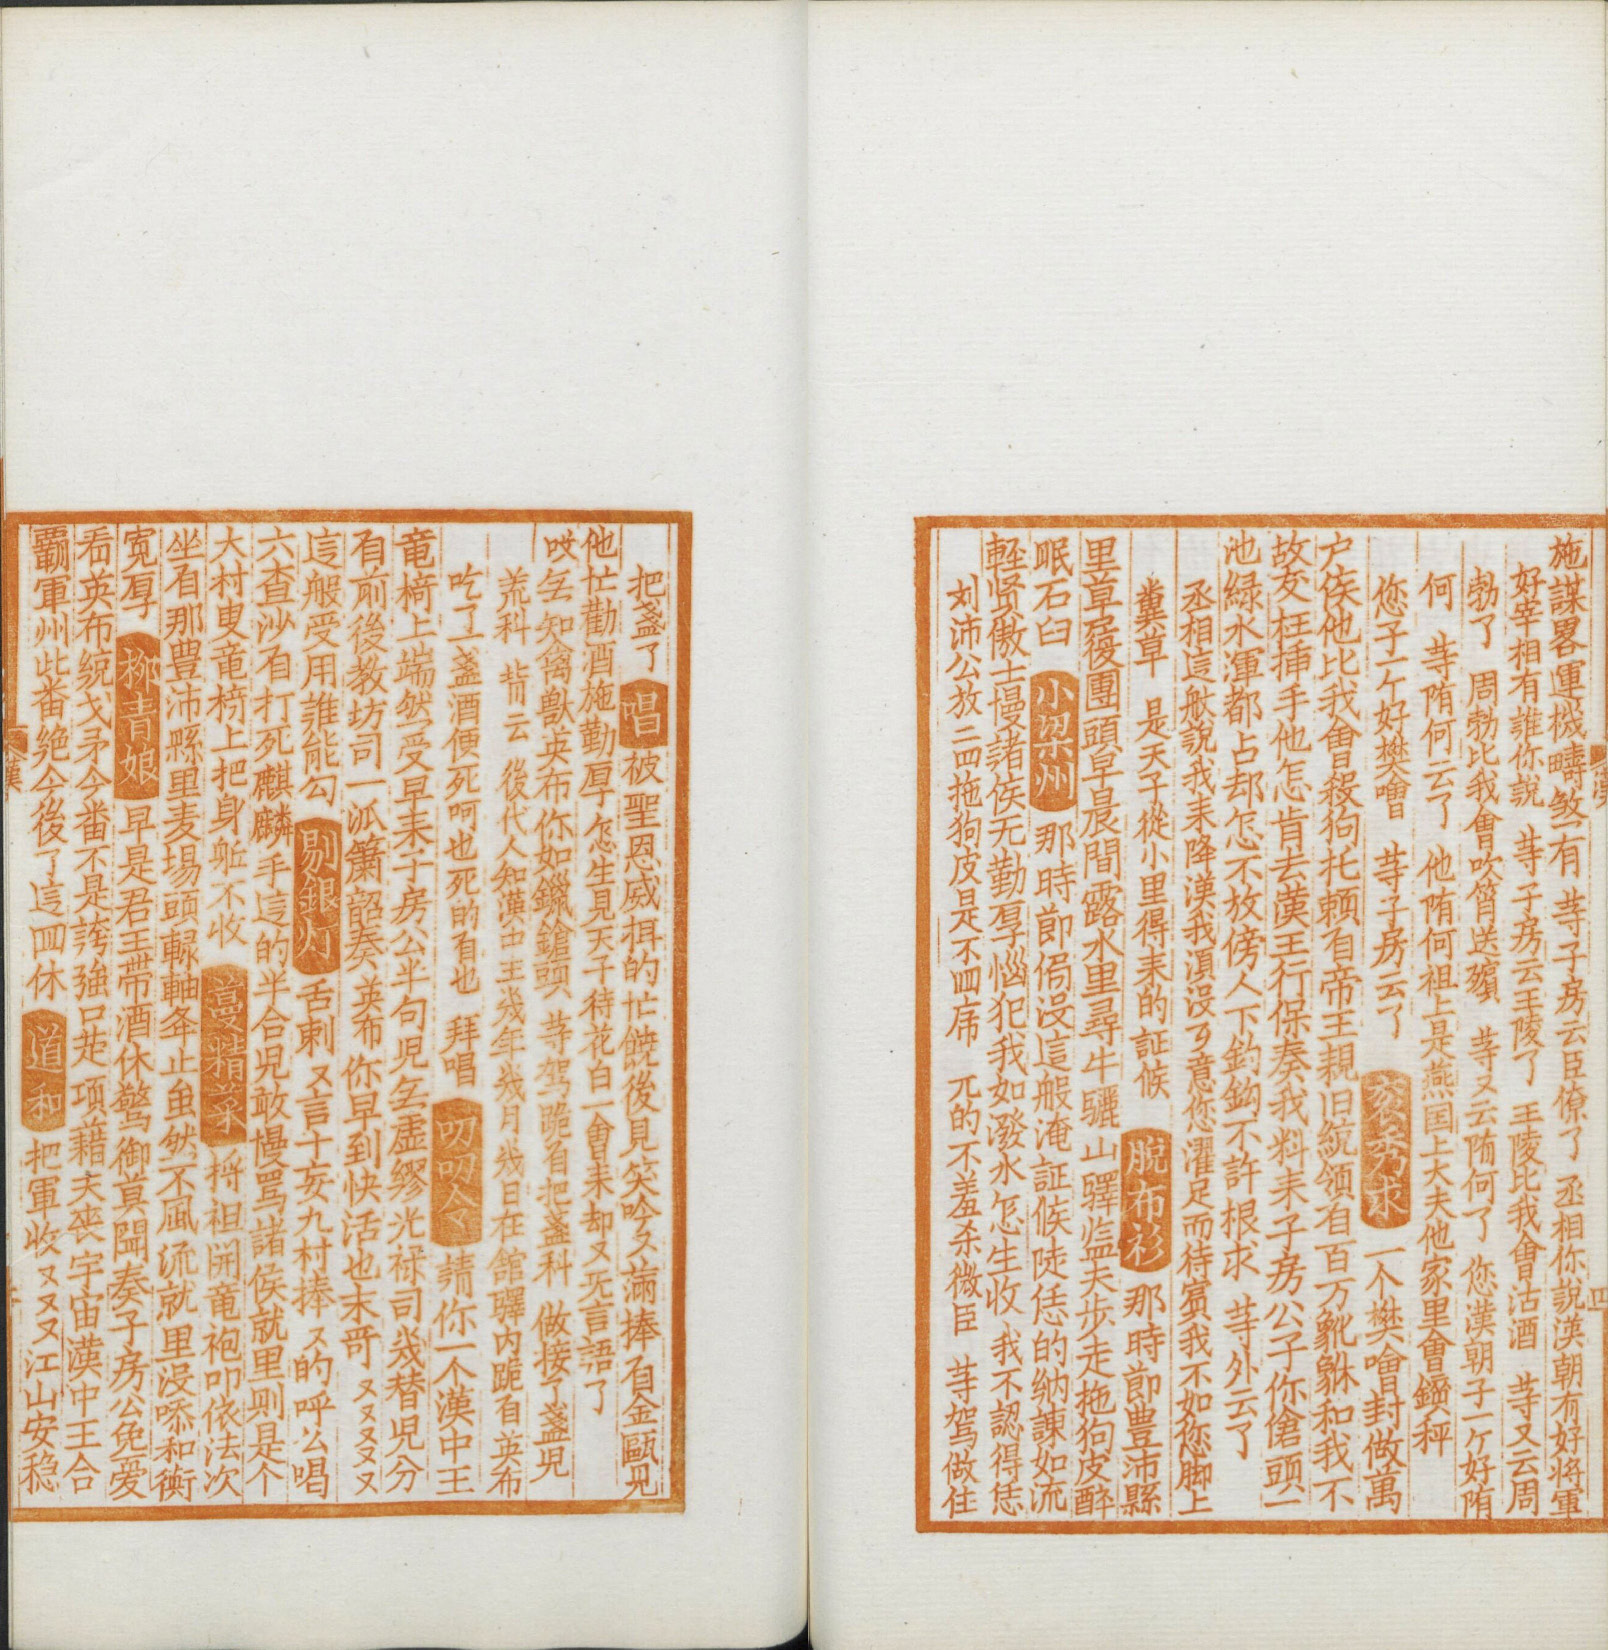 施謀畧運機疇敛有 䒭子房云臣僚了 丞相你說漢朝有好将軍
好宰相有誰你說 䒭子房云王陵了 王陵比我會沽酒 䒭又云周
勃了 周勃比我會吹筲送殯 䒭又云隋何了 您漢朝子一个好隋
何 䒭隋何云了 他隋何祖上是燕国上大夫他家里會鑽秤
您子一个好樊噲 䒭子房云了 袞秀求 一个樊噲封做萬
户侯他比我會殺狗托頼有帝王親旧統領有百万貔貅和我不
故友枉揷手他怎肯去漢王行保奏我料来子房公子你傖頭一
池緑水渾都占却怎不放傍人下釣鈎不許根求 䒭外云了
丞相這般說我来降漢我湏沒歹意您濯足而待賔我不如您脚上
糞草 是天子從小里得来的証候 脫布衫 那時節豊沛縣
里草履團頭早晨間露水里尋牛驪山驛监夫步走拖狗皮醉
眠石臼 小梁州 那時節侷沒這般淹証候陡恁的納諫如流
軽贤傲士慢諸侯无勤厚惱犯我如潑水怎生收 我不認得恁
刘沛公放二四拖狗皮是不回席 兀的不羞杀微臣 䒭驾做住
把盞了 唱 被聖恩威怬的忙饒後見笑吟又滿捧有金甌児
他忙勸酒施勤厚怎生見天子待花白一會来却又旡言語了
哎坌知禽獸英布你如鑞鎗頭 䒭驾跪有把盞科 做接了盞児
荒科 背云 後代人知漢中王㡬年㡬月㡬日在舘驛内跪有英布
吃了一盞酒便死呵也死的有也 拜唱 叨叨令 請你一个漢中王
竜椅上端然受早来子房公半句児坌虚繆光禄司㡬替児分
有前後教坊司一泒簫韶奏英布你早到快活也末哥 又又又又
這般受用誰能勾 剔銀灯 舌剌又言十妄九村捧又的呼么唱
六查沙有打死麒麟手這的半合児敢慢骂諸候就里則是个
大村叟竜椅上把身軀不收 蔓精菜 将袒開竜袍叩依法次
坐有那豊沛縣里麦場頭碌軸夆止虽然不風流就里浸嗏和衠
寛厚 柳青娘 早是君王帶酒休驚御莫聞奏子房公免㤅
看英布綂戈矛今畨不是誇強口㨗項藉夫丧宇宙漢中王合
霸軍州此畨絶今後了這回休 道和 把軍收又又又江山安稳